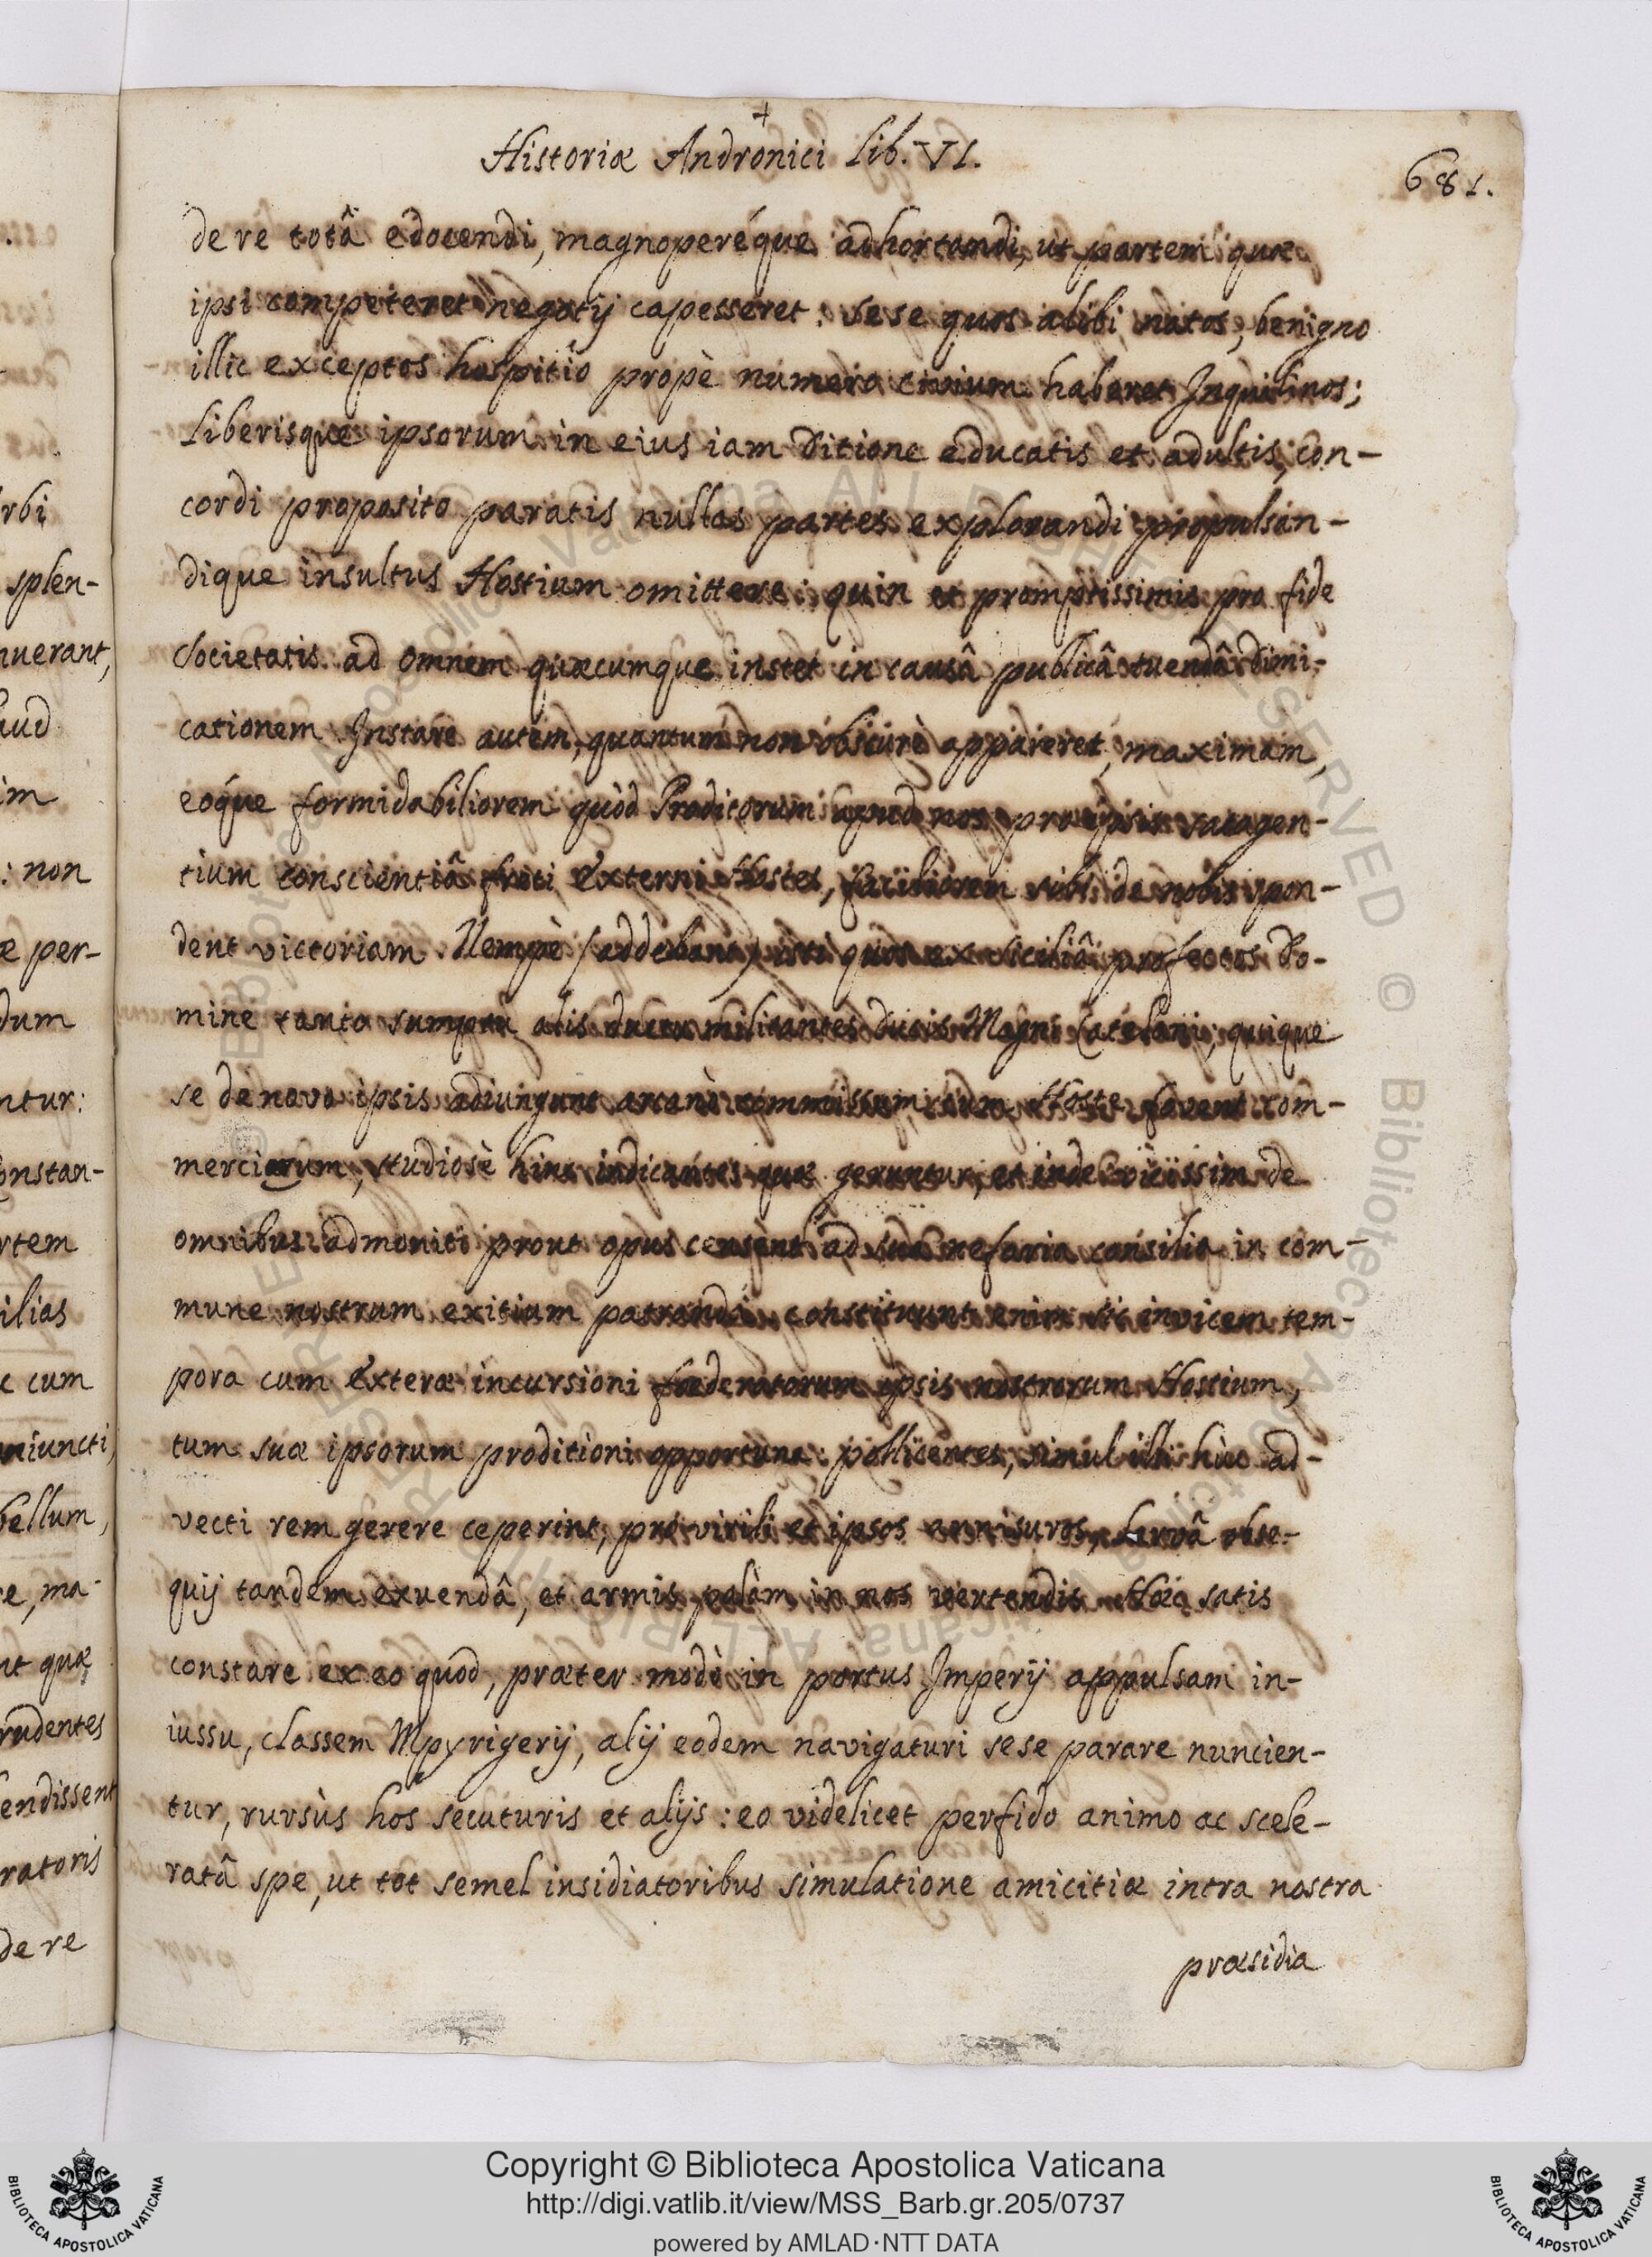 Historiæ Andronici Lib. VI.
681.
de re totâ edocendi, magnoperéque adhortandi, ut partem quæ
ipsi competeret negotij capesseret: sese quos alibi natos, benigno
illic exceptos hospitio propè numero civium haberet Inquilinos;
Liberisque ipsorum in eius iam ditione educatis et adultis, con-
cordi proposito paratis nullas partes explorandi propulsan-
dique insultus Hostium omittere: quin et promptissimis pro fide
Societatis ad omnem quæcumque instet in causâ publicâ tuendâ dimi-
cationem Instare autem, quantum non obscurè appareret, maximam,
eóque formidabiliorem quòd Proditorum apud nos pro ipsis satagen-
tium conscientiâ freti Externi Hostes, faciliorem sibi de nobis spon-
dent victoriam. Nempè (addebant) isti quos ex Siciliâ profectos Do-
mine tanto sumptu alis ductu militantes Ducis Magni Catelani; quique
se de novo ipsis adiungunt arcanè commissum cum Hoste favent com-
mercium, studiosè hinc indicantes quæ geruntur, et inde vicissim de
omnibus admoniti prout opus censent ad sua nefaria consilia in com-
mune nostrum exitium patrandi. constituunt enim sic invicem tem-
pora cum Exteræ incursioni fœderatorum ipsis nostrorum Hostium,
tum suæ ipsorum proditioni opportuna: pollicentes, simul illi hùc ad-
vecti rem gerere ceperint, pro virili et ipsos annisuros, Larvâ obse-
quij tandem exuendâ, et armis palàm in nos vertendis. Hæc satis
constare ex eo quod, præter modò in portus Imperij appulsam in-
iussu, classem Mpyrigerij, alij eodem navigaturi sese parare nuncien-
tur, rursùs hos secuturis et alijs: eo videlicet perfido animo ac scele-
ratâ spe, ut tot semel insidiatoribus simulatione amicitiæ intra nostra
præsidia
rbi
splen-
nuerant,
aud
im
: non
æ per-
dum
ntur:
onstan-
rtem
ilias
c cum
niuncti,
bellum,
re, ma-
nt quæ
rudentes
endissent
ratoris
de re
Copyright © Biblioteca Apostolica Vaticana
http://digi.vatlib.it/view/MSS_Barb.gr.205/0737
powered by AMLAD·NTT DATA
BIBLIOTECA APOSTOLICA VATICANA
BIBLIOTECA APOSTOLICA VATICANA